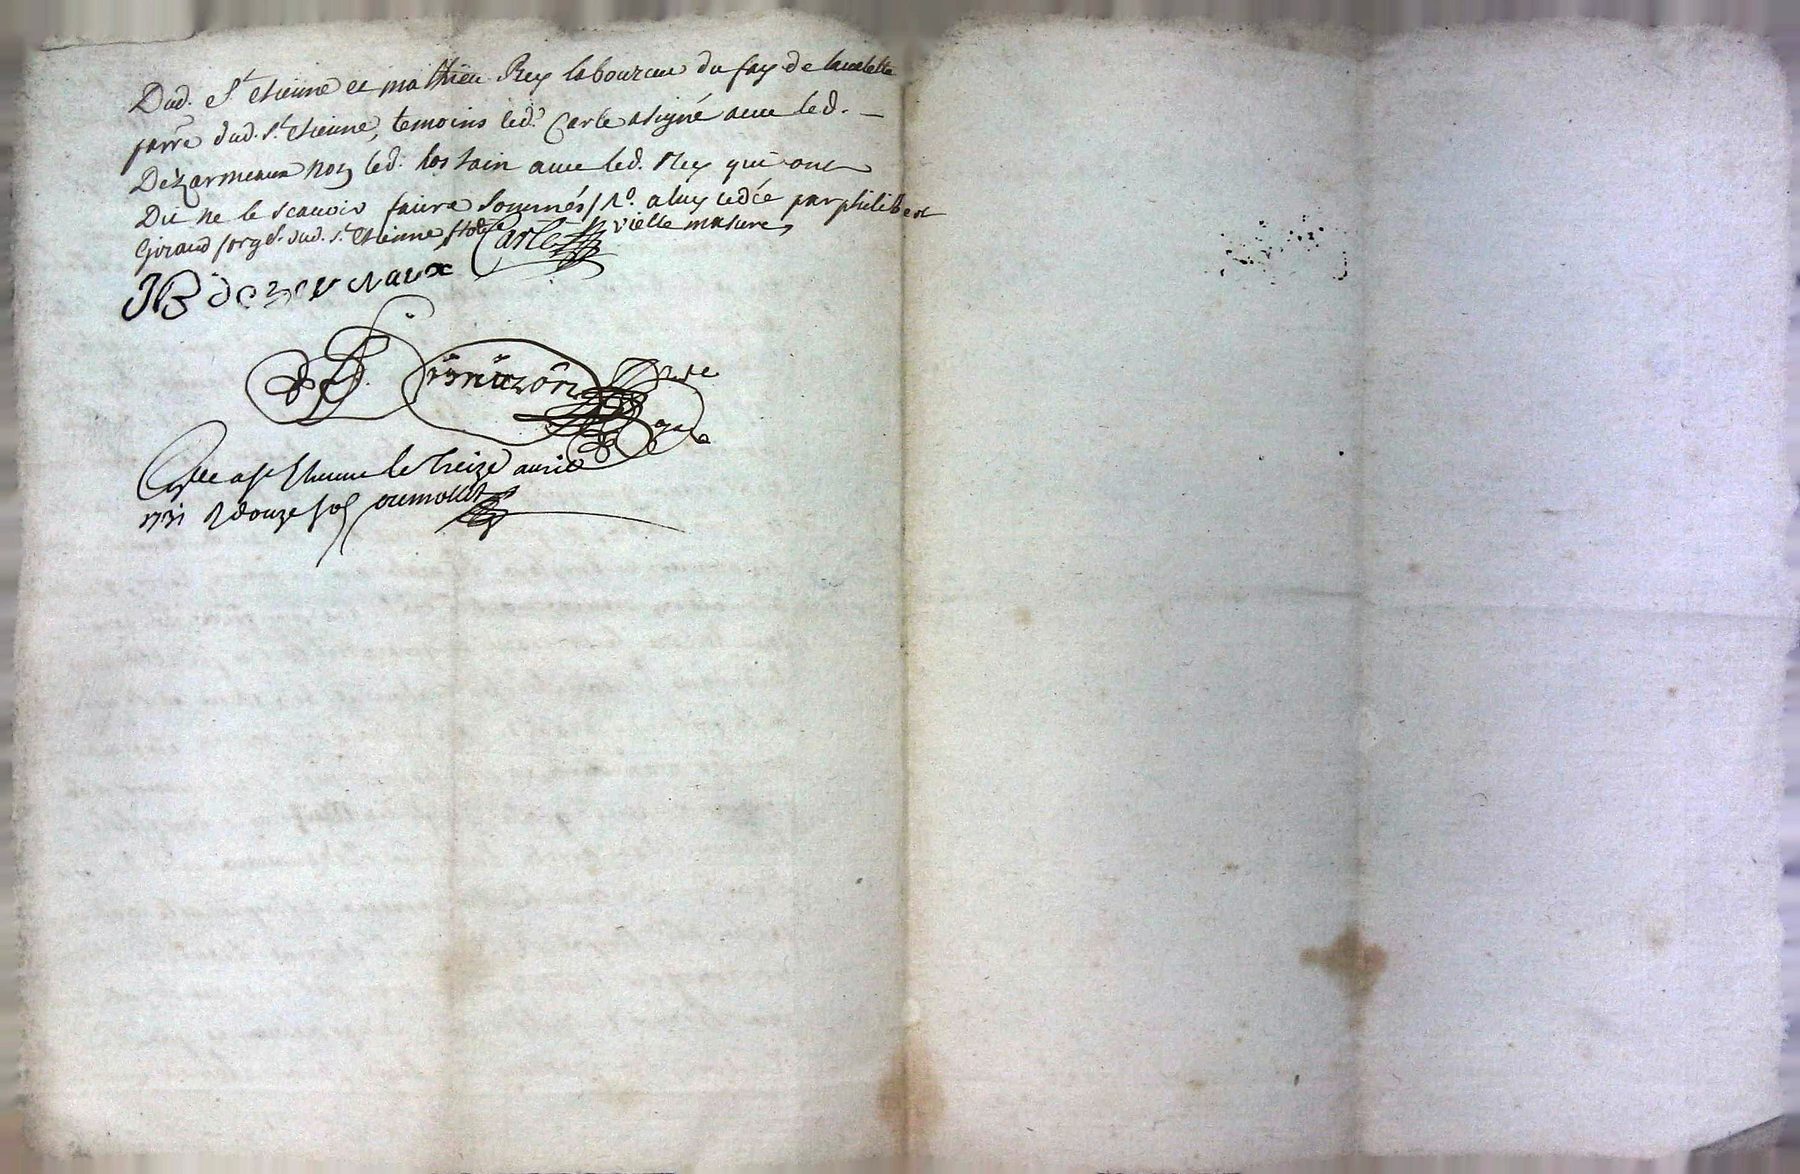 Dud. St Etienne et mathieu Rey laboureur du fay de lavalette
parre dud. St Etienne, temoins led. Carle a signé avec led.
Dezarmeaux non led. tostain avec led. Rey qui ont
Dit ne le scavoir faire sommés / Ro. a luy cedée par philibert
Giraud forgr. dud. St Etienne / vielle masure
Carle
JB dezermaux
nore
Contle a St Etienne le treize avril
1731 R douze sols